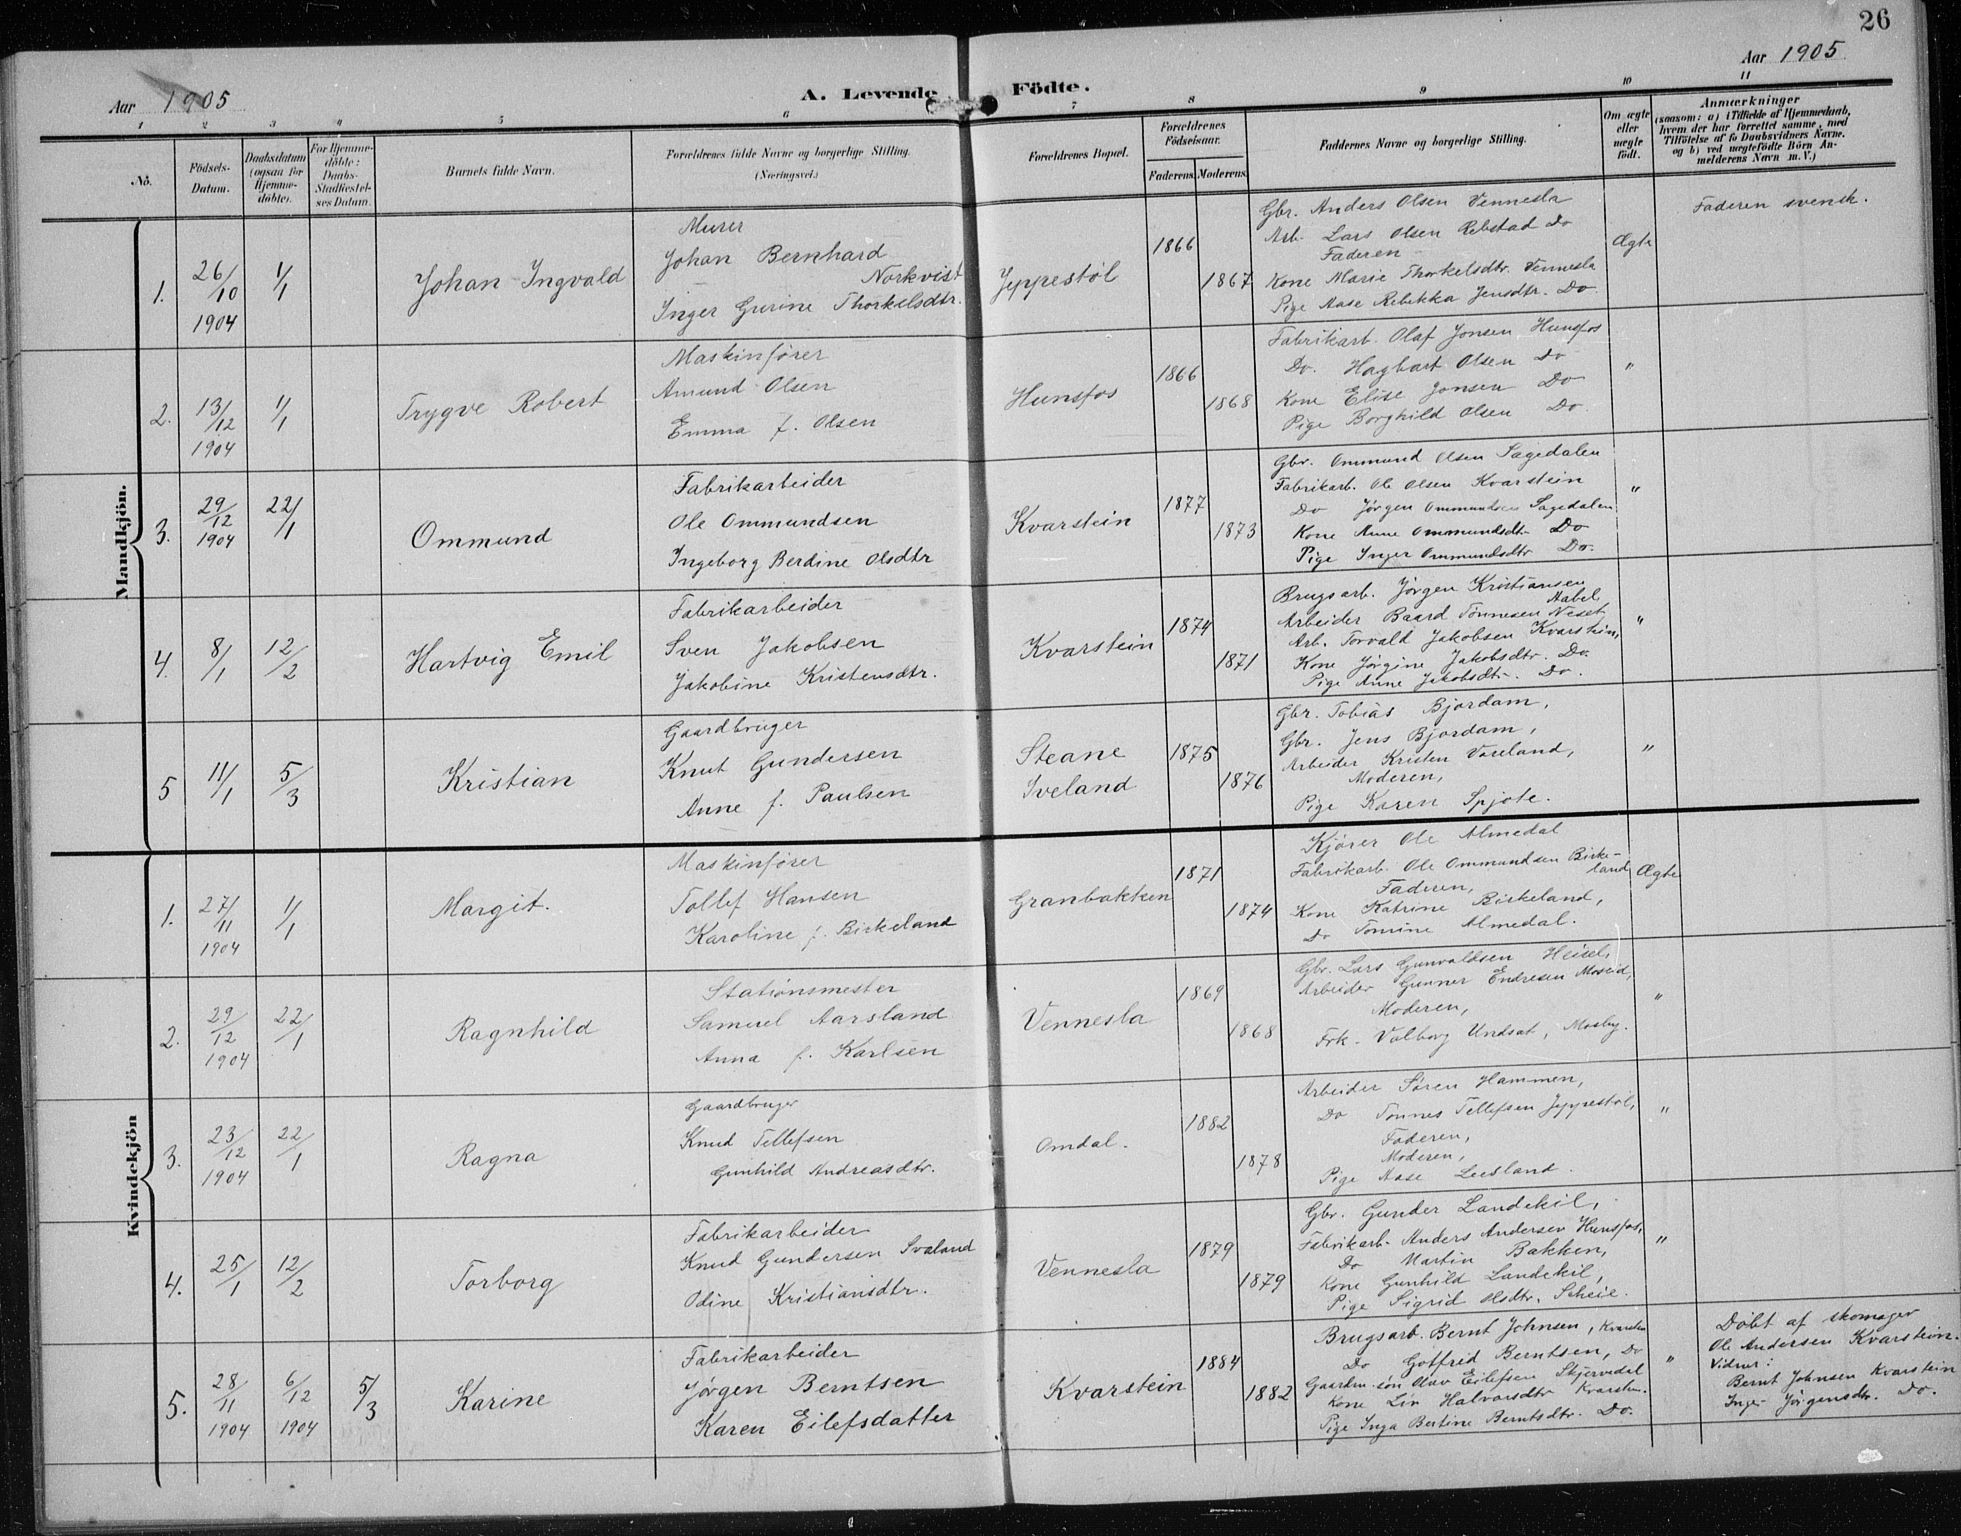 26
Aar 1905
Aar 1905
A. Levende Födte.
1 2 3 4 5 6 7 8 9 10 11
No.
Födsels-Datum.
Daabsdatum (ogsaa for Hjemme-döbte).
For Hjemme-döbte: Daabs-Stadfæstel-ses Datum.
Barnets fulde Navn.
Forældrenes fulde Navne og borgerlige Stilling.
(Næringsvei.)
Forældrenes Bopæl.
Forældrenes Födselsaar.
Faderens. Moderens.
Faddernes Navne og borgerlige Stilling.
Om ægte eller uægte födt.
Anmærkninger
(saasom: a) i Tilfælde af Hjemmedaab, hvem der har forrettet samme, med Tilföielse af to Daabsvidners Navne. og b) ved uægtefödte Börn Anmelderens Navn m. V.)
Mandkjön.
1.
26/10 1904
1/1
Johan Ingvald
Murer
Johan Bernhard
Norkvist
Inger Gurine Thorkelsdtr.
Jeppestøl
1866
1867
Gbr. Anders Olsen Vennesla
Arb. Lars Olsen Rebstad Do
Faderen
Kone Marie Thorkelsdtr. Vennesla
Pige Aase Rebekka Jensdtr. Do.
Ægte
Faderen svensk.
2.
13/12 1904
1/1
Trygve Robert
Maskinfører
Amund Olsen
Emma f. Olsen
Hunsfos
1866
1868
Fabrikarb. Olaf Jonsen Hunsfos
Do. Hagbart Olsen Do
Kone Elise Jonsen Do
Pige Borghild Olsen Do.
"
3.
29/12 1904
22/1
Ommund
Fabrikarbeider
Ole Ommundsen
Ingeborg Berdine Olsdtr
Kvarstein
1877
1873
Gbr. Ommund Olsen Sagedalen
Fabrikarb. Ole Olsen Kvarstein
Do Jørgen Ommundsen Sagedalen
Kone Anne Ommundsdtr Do
Pige Inger Ommundsdtr Do.
"
4.
8/1
12/2
Hartvig Emil
Fabrikarbeider
Sven Jakobsen
Jakobine Kristensdtr.
Kvarstein
1874
1871
Brugsarb. Jørgen Kristiansen
Aabel,
Arbeider Baard Tønnesen Neset
Arb. Torvald Jakobsen Kvarstein,
Kone Jørgine Jakobsdtr. Do.
Pige Anne Jakobsdtr. Do.
"
5
11/1
5/3
Kristian
Gaardbruger
Knut Gundersen
Anne f. Paulsen
Steane
Iveland
1875
1876
Gbr. Tobias Bjordam,
Gbr. Jens Bjordam,
Arbeider Kristen Vaeland,
Moderen,
Pige Karen Spjote.
"
Kvindekjön
1.
27/11 1904
1/1
Margit.
Maskinfører
Tollef Hansen
Karoline f. Birkeland
Granbakken
1871
1874
Kjører Ole Almedal
Fabrikarb. Ole Ommundsen Birke-
land
Faderen,
Kone Katrine Birkeland,
Do Tomine Almedal.
Ægte
2.
29/12 1904
22/1
Ragnhild
Stationsmester
Samuel Aarsland
Anna f. Karlsen
Vennesla
1869
1868
Gbr. Lars Gunvaldsen Heisel,
Arbeider Gunner Endresen Moseid,
Moderen,
Frk. Valborg Undsat, Mosby.
"
3.
23/12 1904
22/1
Ragna
Gaardbruger
Knud Tellefsen
Gunhild Andreasdtr.
Omdal.
1882
1878
Arbeider Søren Hammen,
Do Tønnes Tellefsen Jeppestøl,
Faderen,
Moderen,
Pige Aase Leesland.
"
4.
25/1
12/2
Torborg
Fabrikarbeider
Knud Gundersen Svaland
Odine Kristiansdtr.
Vennesla
1879
1879
Gbr. Gunder Landekil,
Fabrikarb. Anders Andersen Hunsfos,
Do Martin Bakken,
Kone Gunhild Landekil,
Pige Sigrid Olsdtr. Scheie.
"
5.
28/11 1904
6/12 1904
5/3
Karine
Fabrikarbeider
Jørgen Berntsen
Karen Eilefsdatter
Kvarstein
1884
1882
Brugsarb. Bernt Johnsen, Kvarstein
Do Gotfred Berntsen, Do
Gaardm.søn Olav Eilefsen Skjervedal
Kone Liv Halvorsdtr Kvarstein.
Pige Inga Bertine Berntsdtr. Do.
"
Døbt af skomager
Ole Andersen Kvarstein.
Vidner:
Bernt Johnsen Kvarstein
Inger Jørgensdtr. Do.